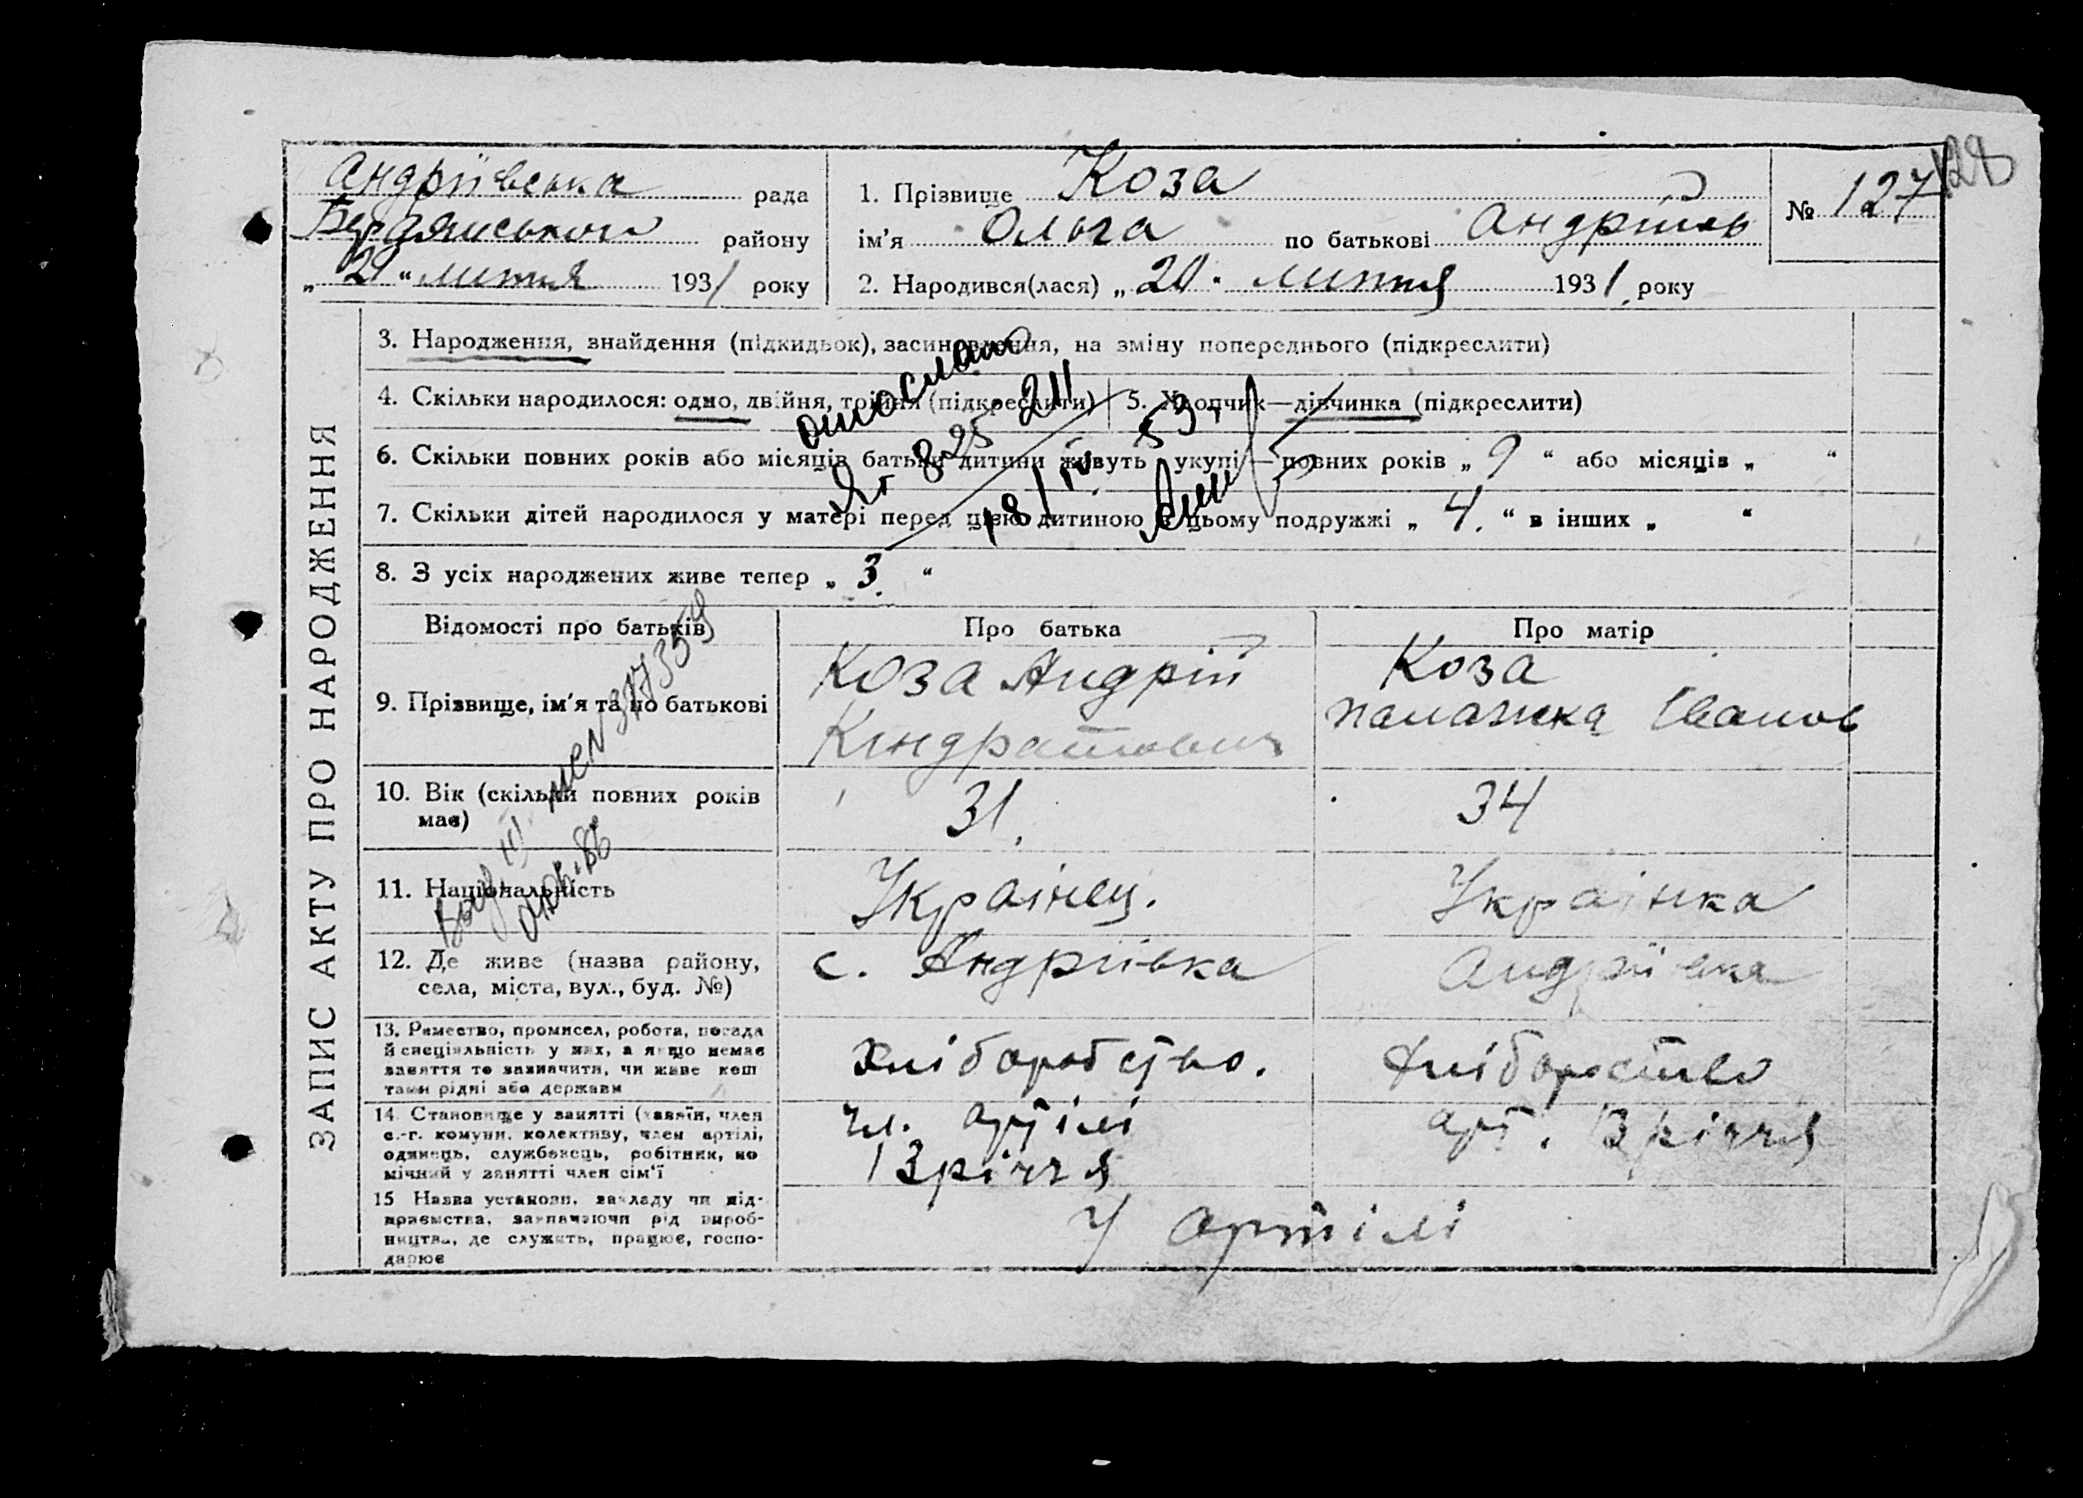 128
Андріївська рада
Бердянського району
„ 21 “ липня 1931 року
1. Прізвище Коза
ім’я Ольга по батькові Андріїв
№ 127
2. Народився(лася) „ 20 “ липня 1931 року
ЗАПИС АКТУ ПРО НАРОДЖЕННЯ
3. Народження, знайдення (підкидьок), засиновлення, на зміну попереднього (підкреслити)
4. Скільки народилося: одно, двійня, трійня (підкреслити) 5. Хлопчик—дівчинка (підкреслити)
6. Скільки повних років або місяців батьки дитини живуть укупі—повних років „ 9 “ або місяців „ “
7. Скільки дітей народилося у матері перед цією дитиною в цьому подружжі „ 4. “ в інших „ “
8. З усіх народжених живе тепер „ 3. “
825 211
18/IV 53
Відомості про батьків
Про батька
Про матір
9. Прізвище, ім’я та по батькові
Коза Андрій
Кіндратович
Коза
Палажка Іванов
10. Вік (скільки повних років
має)
31.
34
11. Національність
Українец.
Українка
12. Де живе (назва району,
села, міста, вул., буд. №)
с. Андріївка
Андріївка
13. Ремество, промисел, робота, посада
й спеціяльність у них, а якщо немає
заняття то зазначити, чи живе кош
тами рідні або держави
Хліборобство.
Хліборобство
14. Становище у занятті (хазяїн, член
с.-г. комуни, колективу, член артілі,
одинець, службовець, робітник, по
мічний у занятті член сім’ї
чл. артілі
13 річчя
арт. 13 річчя
15 Назва установи, закладу чи під-
приємства, зазначаючи рід вироб-
ництва, де служить, працює, госпо-
дарює
У артілі